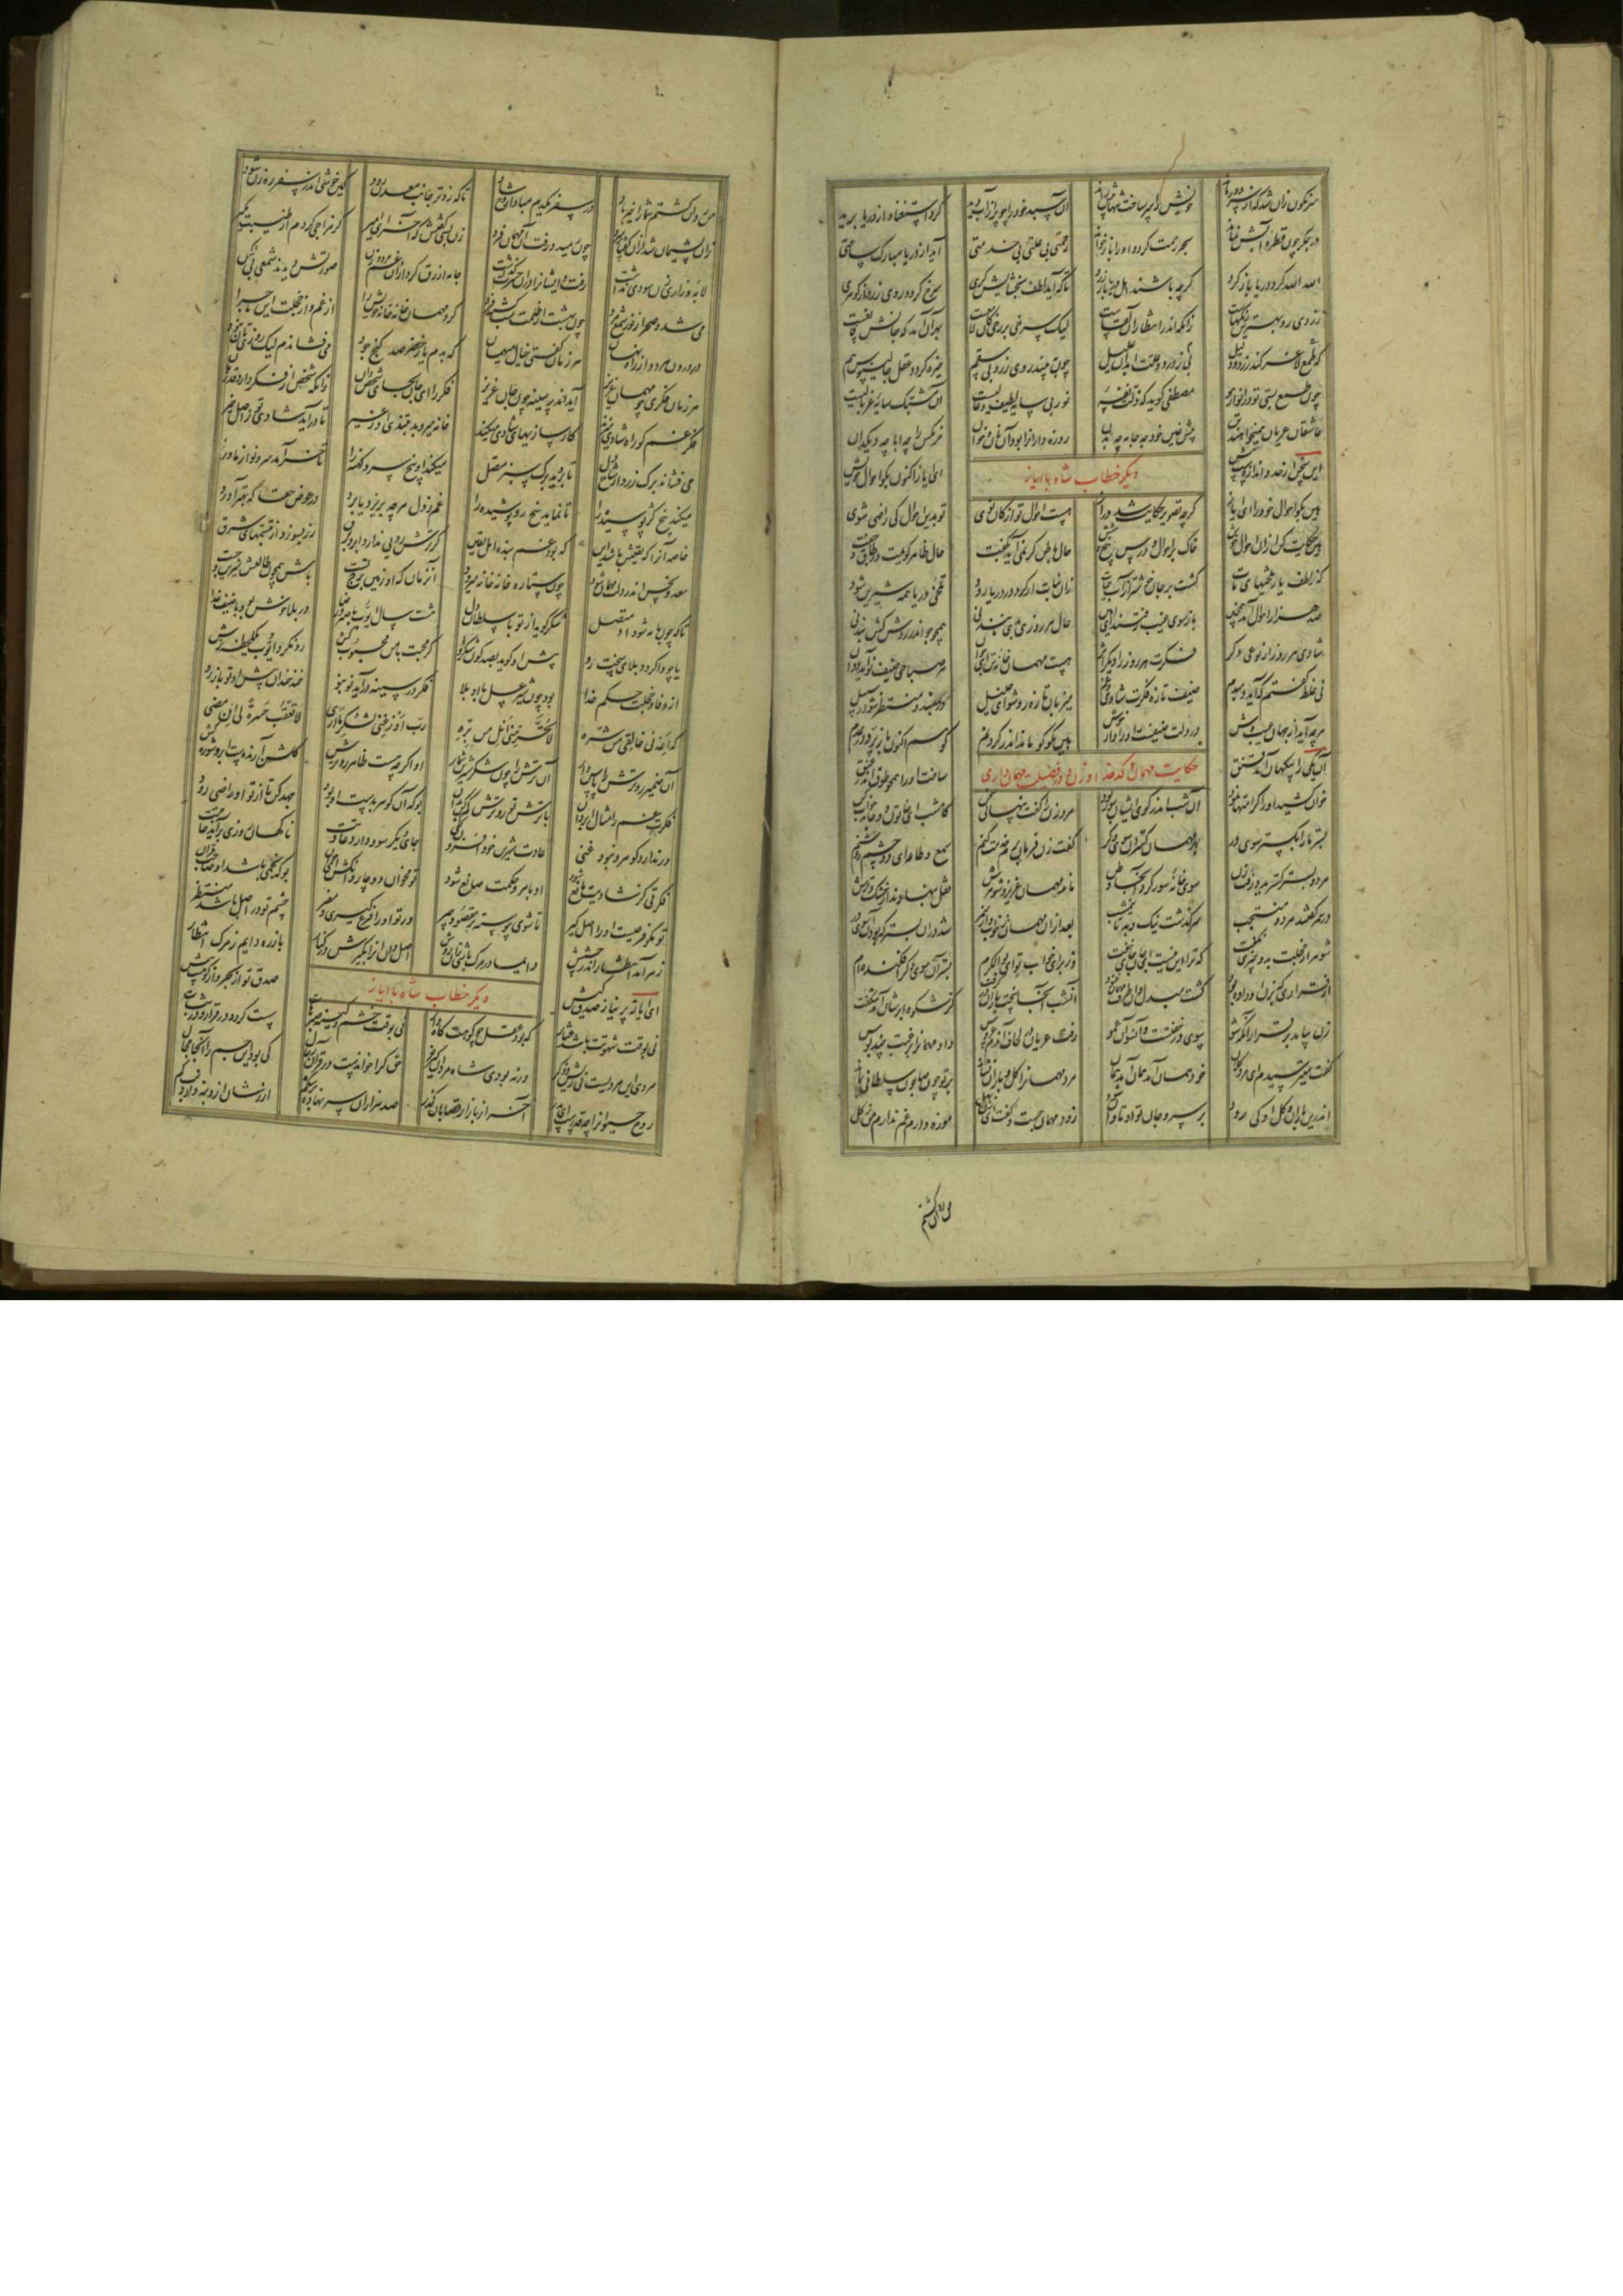 سرنگون زان شد که از سر دور ماند خویش را سر ساخت تنها پیش راند آن سبد خود را چو پر از آب دید کرد استغنا و از دریا برید
در جگر چون قطره آبش نماند بحر رحمت کرد و او را باز خواند رحمتی بی علتی بی خدمتی آید از دریا مبارک ساعتی
الله الله گرد دریا بار گرد گرچه باشند اهل دریا بار زرد تا که آید لطف بخشایشگری سرخ گردد روی زرد از گوهری
زردی رو بهترین رنگهاست زانکه اندر انتظار آن لقاست لیک سرخی بر رخی کان لامعست بهر آن آمد که جانش قانعست
که طمع لاغر کند زرد و ذلیل نی ز درد و علت آید آن علیل چون ببیند روی زرد بی سقم خیره گردد عقل جالینوس هم
چون طمع بستی تو در انوار هو مصطفی گوید که ذلت نفسه نور بی سایه لطیف و عالیست آن مشبک سایه غربالیست
عاشقان عریان همیخواهند تن پیش عنینان چه جامه چه بدن روزه داران را بود آن نان و خوان خرمگس را چه ابا چه دیگدان
این سخن از حد و اندازه است بیش ای ایاز اکنون بگو احوال خویش
دیگر خطاب شاه با ایاز
هین بگو احوال خود را ای ایاز گرچه تصویر حکایت شد دراز هست احوال تو از کان نوی تو بدین احوال کی راضی شوی
هین حکایت کن از آن احوال خوش خاک بر احوال و درس پنج و شش حال باطن گر نمی آید بگفت حال ظاهر گویمت در طاق و جفت
که ز لطف یار تلخیهای مات گشت بر جان خوشتر از آب حیات زان نبات ار گرد در دریا رود تلخی دریا همه شیرین شود
صد هزار احوال آمد همچنین باز سوی غیب رفتند ای امین حال هر روزی بدی مانند نی همچو جو اندر روش کش بند نی
شادی هر روز از نوعی دگر فکرت هر روز را دیگر اثر هست مهمان خانه این تن ای جوان هر صباحی ضیف نو آید دوان
نی غلط گفتم که آید دمبدم ضیف تازه فکرت شادی و غم میزبان تازه رو شو ای خلیل در مبند و منتظر شو در سبیل
هرچه آید از جهان غیب وش در دلت ضیفست او را دار خوش هین مگو کو ماند اندر گردنم کو هم اکنون باز پرد در عدم
آن یکی را میهمان آمد قنق ساخت او را همچو طوق اندر عنق
حکایت مهمان و کدخدا و زن و در فضیلت مهمان داری
خوان کشید او را کرامتها نمود آن شب اندر کوی ایشان سور بود مرد زن را گفت پنهانی سخن کامشب ای خاتون دو جامه خواب کن
بستر ما را بگستر سوی در بهر مهمان گستر آن سوی دگر گفت زن فرمان برم خدمت کنم سمع و طاعه ای دو چشم روشنم
هر دو بستر گسترید و رفت زن سوی ختنه سور کرد آنجا وطن ماند مهمان عزیز و شوهرش نقل بنهادند از خشک و ترش
در سمر گفتند هر دو منتجب سرگذشت نیک و بد تا نیم شب بعد از آن مهمان ز خواب و از سمر شد در آن بستر که بود آن سوی در
شوهر از خجلت بدو چیزی نگفت که ترا این سوست ای جان جای خفت وز برای خواب تو ای بوالکرم بستر آن سوی دگر افکنده ام
آن قراری که بزن او داده بود گشت مبدل و آن طرف مهمان غنود آن شب آنجا سخت باران درگرفت کز شکوه ابرشان آمد شگفت
زن بیامد بر قرار آنکه شو سوی در خفتست و آن سو آن عمو رفت عریان در لحاف آندم عروس داد مهمان را برغبت چند بوس
گفت میترسیدم ای مرد کلان خود همان آمد همان آمد همان مرد مهمان را گل و باران نشاند بر تو چون صابون سلطانی بماند
اندرین باران و گل او کی رود بر سر و جان تو او تاوان شود زود مهمان جست و گفت ای زن بهل موزه دارم غم ندارم من ز گل
من روان گشتم
من روان گشتم شما را خیر باد در سفر یکدم مبادا روح شاد تا که زوتر جانب معدن رود کاین خوشی اندر سفر رهزن شود
زن پشیمان شد از آن گفتار سرد چون رمید و رفت آن مهمان فرد زن بسی گفتش که آخر ای امیر گر مزاحی کردم از طیبت مگیر
لابه و زاری زن سودی نداشت رفت و ایشان را در آن حسرت گذاشت جامه ازرق کرد از آن غم مرد و زن صورتش دیدند شمعی بی لگن
می شد و صحرا ز نور شمع مرد چون بهشت از ظلمت شب گشته فرد کرد مهمان خانه خانه خویش را از غم و از خجلت این ماجرا
در درون هر دو از راه نهان هر زمان گفتی خیال میهمان که بدم یار خضر صد گنج جود می فشاندم لیک روزیتان نبود
هر زمان فکری چو مهمان عزیز آید اندر سینه چون جان عزیز فکر را ای جان بجای شخص دان زانکه شخص از فکر دارد قدر و جان
فکر غم گر راه شادی میزند کارسازیهای شادی میکند خانه میروبد بتندی او ز غیر تا درآید شادی نو ز اصل خیر
می فشاند برگ زرد از شاخ دل تا بروید برگ سبز متصل میکند او بیخ سرو کهنه را تا خرامد سرو نو از ماورا
میکند بیخ کژ پوسیده را تا نماید بیخ رو پوشیده را غم ز دل هرچه بریزد یا برد در عوض حقا که بهتر آورد
خاصه آن را که یقینش باشد این که بود غم بنده اهل یقین گر ترش رویی ندارد ابر و برق رز بسوزد از تبسمهای شرق
سعد و نحس اندر دلت مهمان شود چون ستاره خانه خانه میرود آن زمان که او زمین برج تست باش همچون طالعش شیرین و چست
تا که چون با مه شود او متصل شکر گوید از تو با سلطان دل هفت سال ایوب با صبر و رضا در بلا خوش بود با ضیف خدا
تا چو واگردد بلای سخت رو پیش او گوید بصد گون شکر او کز محبت با من محبوب کش رو نکرد ایوب یک لحظه ترش
از وفا و خجلت حکم خدا بود چون شیر و عسل با او بلا فکر در سینه درآید نو بنو خند خندان پیش او تو باز رو
که اعذنی خالقی من شره لا تحرمنی انل من بره رب اوزعنی لشکر ما اری لا تعقب حسرة لی ان مضی
آن ضمیر رو ترش را پاس دار آن ترش را چون شکر شیرین شمار او اگرچه هست ظاهر رو ترش گلشن آرنده ست ابر و شوره کش
فکرت غم را مثال ابر دان با ترش تو رو ترش کم کن چنان بو که آن گوهر بدست او بود جهد کن تا از تو او راضی رود
ور ندارد گوهر و نبود غنی عادت شیرین خود افزون کنی جای دیگر سود دارد عادتت ناگهان روزی برآید حاجتت
فکرتی کز شادیت مانع شود او بامر و حکمت صانع شود تو مخوان دو چار دانگش ای جوان بو که نجمی باشد و صاحب قران
تو مگو فرعیست او را اصل گیر تا شوی پیوسته بر مقصود چیر ور تو او را فرع گیری و مضر چشم تو در اصل باشد منتظر
زهر آمد انتظار اندر چشش دایما در مرگ باشی زان روش اصل دان آن را بگیرش در کنار باز ره دایم ز مرگ انتظار
ای ایاز پر نیاز صدق کیش صدق تو از بحر و از کوهست بیش
دیگر خطاب شاه با ایاز
نی بوقت شهوتت باشد عثار که رود عقل چو کوهت کاه وار نی بوقت خشم و کینه صبرهات سست گردد در قرار و در ثبات
مردی این مردیست نی ریش و ذکر ورنه بودی شاه مردان کیر خر حق کرا خواندست در قرآن رجال کی بود این جسم را آنجا مجال
روح حیوان را چه قدرست ای پدر آخر از بازار قصابان گذر صد هزاران سر نهاده بر شکم ارزشان از دنبه و از دم کم